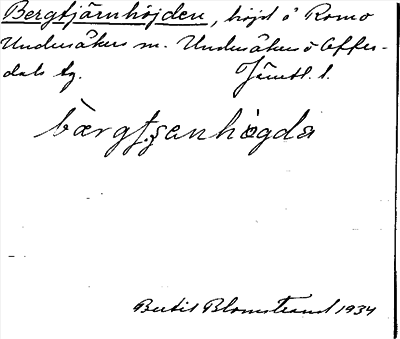 Bergtjärnhöjden, höjd å Romo
Undersåkers sn. Undersåkers o Offer-
dals tg. Jämtl. l.
bærgtʂenhøgda
Bertil Blomstrand 1934